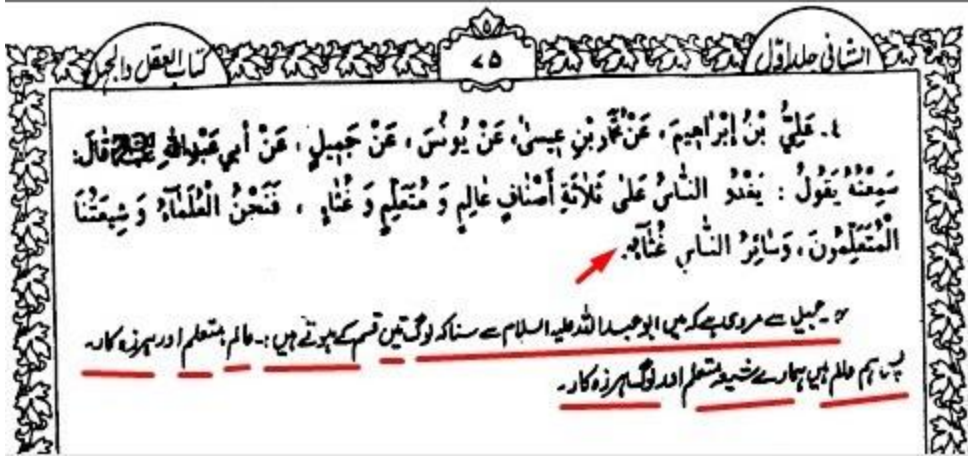 الشافی جلد اوّل
۷۵
کتاب العقل والجہل
٤- عَلِيُّ بْنُ إِبْرَاهِيمَ، عَنْ مُحَمَّدِ بْنِ عِيسىٰ، عَنْ يُونُسَ، عَنْ جَمِيلٍ، عَنْ أَبِي عَبْدِاللهِ قالَ:
سَمِعْتُهُ يَقُولُ : يَغْدُو النّاسُ عَلىٰ ثَلاثَةِ أَصْنافٍ عالِمٍ وَ مُتَعَلِّمٍ وَ غُثاءٍ ، فَنَحْنُ الْعُلَماءُ وَ شِيعَتُنَا
الْمُتَعَلِّمُونَ، وَسائِرُ النّاسِ غُثاءٌ.
۴- جمیل سے مروی ہے کہ میں ابو عبداللہ علیہ السلام سے سنا کہ لوگ تین قسم کے ہوتے ہیں :۔ عالم ، متعلم اور ہرزہ کار۔
پس ہم عالم ہیں ہمارے شیعہ متعلم اور لوگ ہرزہ کار۔